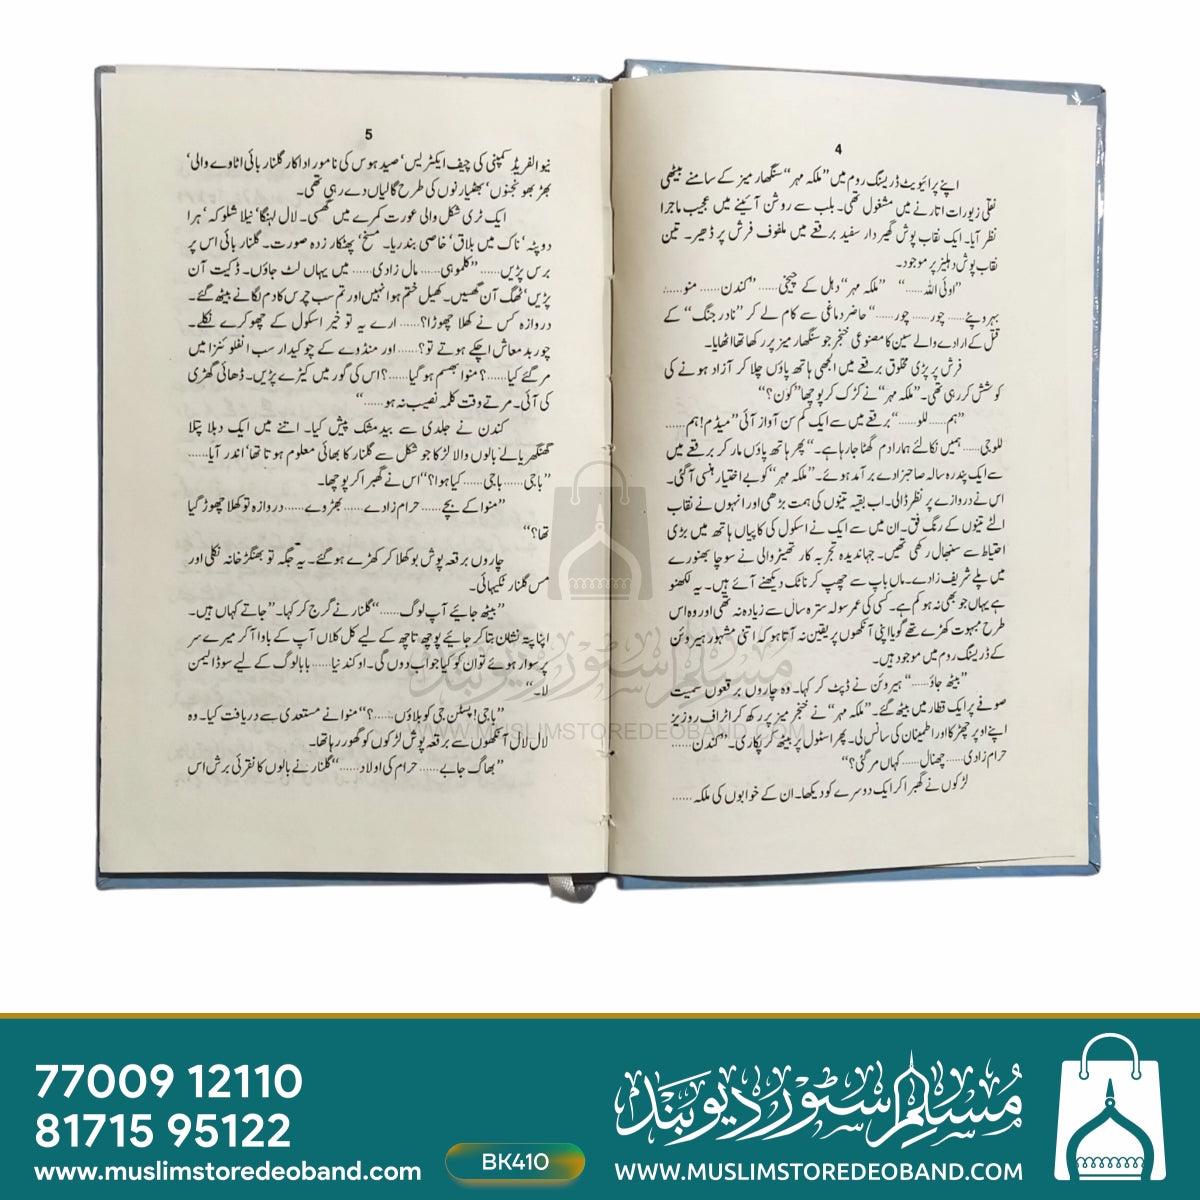 4
اپنے پرائیویٹ ڈریسنگ روم میں ”ملکہ مہر“ سنگھار میز کے سامنے بیٹھی
نقلی زیورات اتارنے میں مشغول تھی۔ بلب سے روشن آئینے میں عجیب ماجرا
نظر آیا۔ ایک نقاب پوش گھیر دار سفید برقعے میں ملفوف فرش پر ڈھیر۔ تین
نقاب پوش دہلیز پر موجود۔
”اوئی اللہ......“ ”ملکہ مہر“ دہل کے چیخی...... ”کندن...... منو......
بہروپئے...... چور...... چور......“ حاضر دماغی سے کام لے کر ”نادر جنگ“ کے
قتل کے ارادے والے سین کا مصنوعی خنجر جو سنگھار میز پر رکھا تھا اٹھایا۔
فرش پر پڑی مخلوق برقعے میں الجھی ہاتھ پاؤں چلا کر آزاد ہونے کی
کوشش کر رہی تھی۔ ”ملکہ مہر“ نے کڑک کر پوچھا ”کون؟“
”ہم...... للو......“ برقعے میں سے ایک کم سن آواز آئی ”میڈم! ہم......
للو جی...... ہمیں نکالئے ہمارا دم گھٹا جا رہا ہے۔“ پھر ہاتھ پاؤں مار کر برقعے میں
سے ایک پندرہ سالہ صاحبزادے برآمد ہوئے۔ ”ملکہ مہر“ کو بے اختیار ہنسی آ گئی۔
اس نے دروازے پر نظر ڈالی۔ اب بقیہ تینوں کی ہمت بڑھی اور انہوں نے نقاب
الٹے تینوں کے رنگ فق۔ ان میں سے ایک نے اسکول کی کاپیاں ہاتھ میں بڑی
احتیاط سے سنبھال رکھی تھیں۔ جہاندیدہ تجربہ کار تھیٹر والی نے سوچا بھنورے
میں پلے شریف زادے۔ ماں باپ سے چھپ کر ناٹک دیکھنے آئے ہیں۔ یہ لکھنو
ہے یہاں جو بھی نہ ہو کم ہے۔ کسی کی عمر سولہ سترہ سال سے زیادہ نہ تھی اور وہ اس
طرح مبہوت کھڑے تھے گویا اپنی آنکھوں پر یقین نہ آتا ہو کہ اتنی مشہور ہیروئن
کے ڈریسنگ روم میں موجود ہیں۔
”بیٹھ جاؤ......“ ہیروئن نے ڈپٹ کر کہا۔ وہ چاروں برقعوں سمیت
صوفے پر ایک قطار میں بیٹھ گئے۔ ”ملکہ مہر“ نے خنجر میز پر رکھ کر اٹراف روزیز
اپنے اوپر چھڑکا اور اطمینان کی سانس لی۔ پھر اسٹول پر بیٹھ کر پکاری۔ ”کندن......
حرام زادی...... چھنال...... کہاں مر گئی؟“
لڑکوں نے گھبرا کر ایک دوسرے کو دیکھا۔ ان کے خوابوں کی ملکہ......
5
نیو الفریڈ کمپنی کی چیف ایکٹریس‘ صید ہوس کی نامور اداکار گلنار بائی اٹاوے والی‘
بھڑ بھونجنوں‘ بھٹیارنوں کی طرح گالیاں دے رہی تھی۔
ایک ٹری شکل والی عورت کمرے میں گھسی۔ لال لہنگا‘ نیلا شلوکہ‘ ہرا
دوپٹہ‘ ناک میں بلاق‘ خاصی بندریا۔ مسخ‘ پھٹکار زدہ صورت۔ گلنار بائی اس پر
برس پڑیں...... ”کلموہی...... مال زادی...... میں یہاں لٹ جاؤں۔ ڈکیت آن
پڑیں‘ ٹھگ آن گھسیں۔ کھیل ختم ہوا نہیں اور تم سب چرس کا دم لگانے بیٹھ گئے۔
دروازہ کس نے کھلا چھوڑا؟...... ارے یہ تو خیر اسکول کے چھوکرے نکلے۔
چور بدمعاش اچکے ہوتے تو؟...... اور منڈوے کے چوکیدار سب انفلوئنزا میں
مر گئے کیا......؟ منوا بھسم ہو گیا......؟ اس کی گور میں کیڑے پڑیں۔ ڈھائی گھڑی
کی آئی۔ مرتے وقت کلمہ نصیب نہ ہو......“
کندن نے جلدی سے بید مشک پیش کیا۔ اتنے میں ایک دبلا پتلا
گھنگھریالے بالوں والا لڑکا جو شکل سے گلنار کا بھائی معلوم ہوتا تھا‘ اندر آیا......
”باجی...... باجی...... کیا ہوا؟“ اس نے گھبرا کر پوچھا۔
”منوا کے بچے...... حرام زادے...... بھڑوے...... دروازہ تو کھلا چھوڑ گیا
تھا؟“
چاروں برقعہ پوش بوکھلا کر کھڑے ہو گئے۔ یہ جگہ تو بھنگڑ خانہ نکلی اور
مس گلنار ٹکیہائی۔
”بیٹھ جائیے آپ لوگ......“ گلنار نے گرج کر کہا۔ ”جاتے کہاں ہیں۔
اپنا پتہ نشان بتا کر جائیے پوچھ تاچھ کے لیے کل کلاں آپ کے باوا آ کر میرے سر
پر سوار ہوئے تو ان کو کیا جواب دوں گی۔ او کندنیا...... بابا لوگ کے لیے سوڈا لیمن
لا۔“
”باجی! پسٹن جی کو بلاؤں......؟“ منوا نے مستعدی سے دریافت کیا۔ وہ
لال لال آنکھوں سے برقعہ پوش لڑکوں کو گھور رہا تھا۔
”بھاگ جا بے...... حرام کی اولاد......“ گلنار نے بالوں کا نقرئی برش اس
مسلم سٹور دیوبند
WWW.MUSLIMSTOREDEOBAND.COM
77009 12110
81715 95122
www.muslimstoredeoband.com
BK410
مسلم سٹور دیوبند
WWW.MUSLIMSTOREDEOBAND.COM